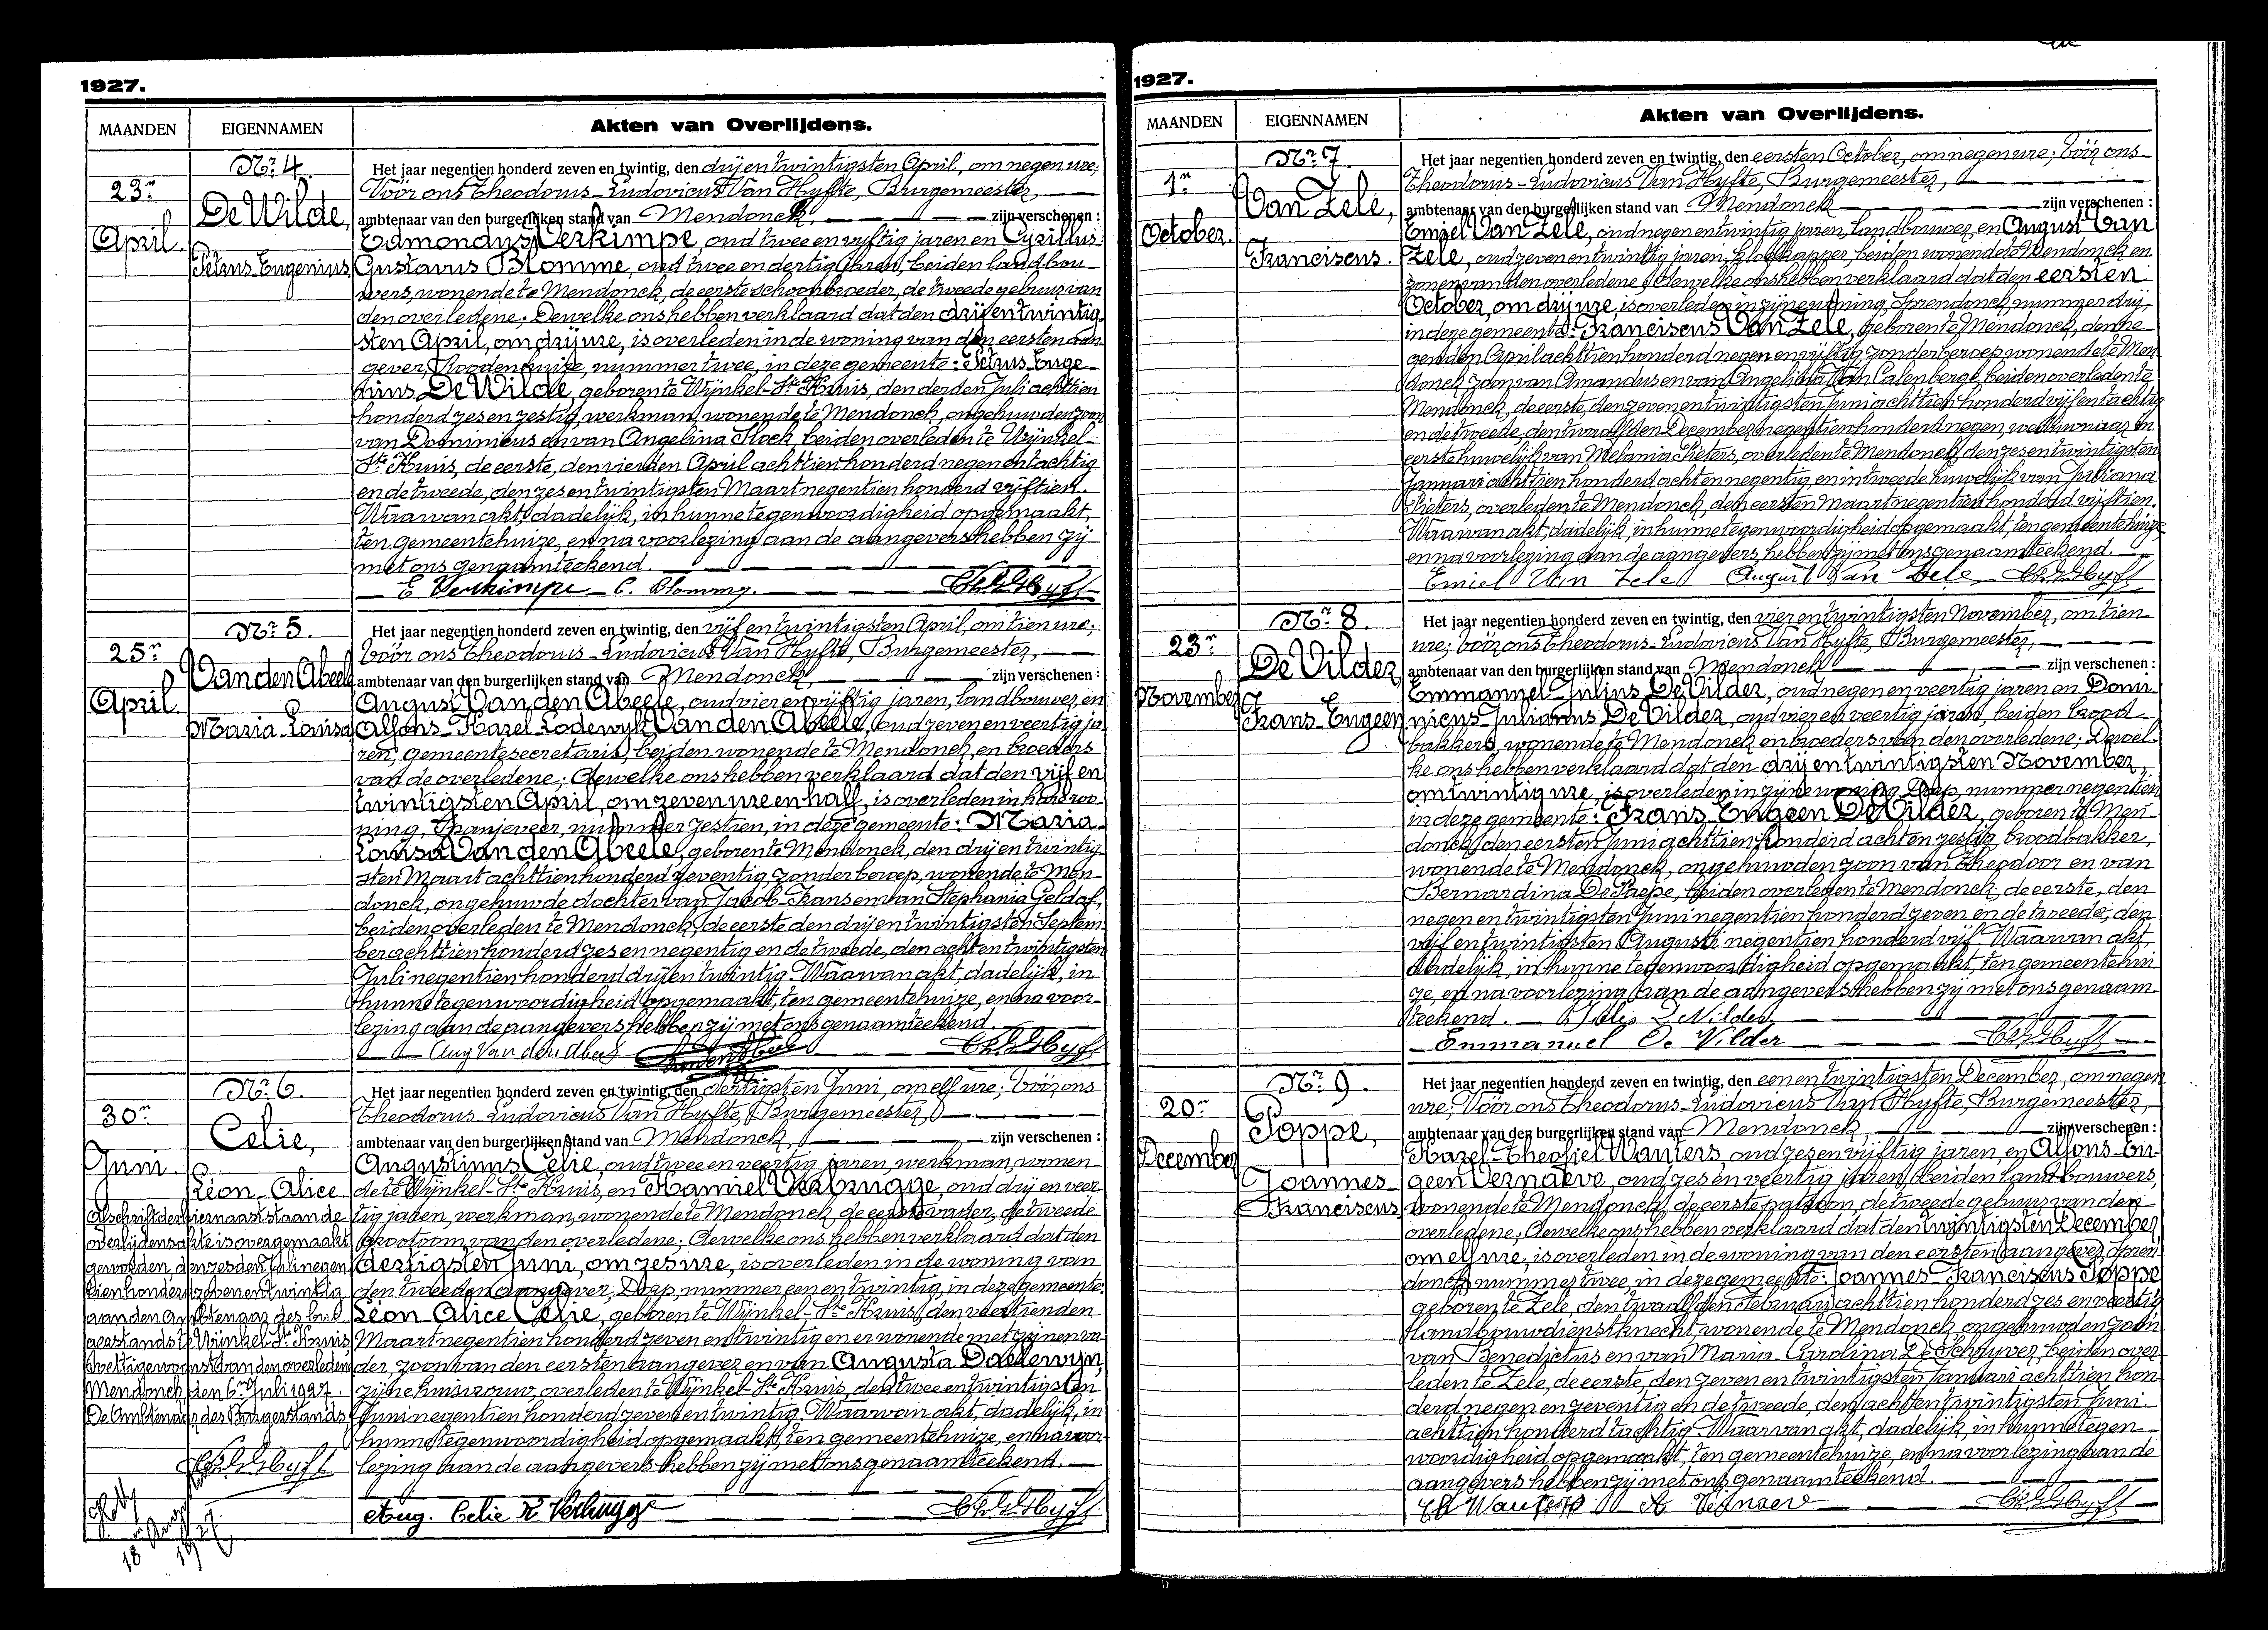 1927.
MAANDEN
EIGENNAMEN
Akten van Overlijdens.
Nr. 4.
23n
April.
De Wilde,
Petrus Eugenius
Het jaar negentien honderd zeven en twintig, den drij en twintigsten April, om negen ure;
Vóór ons Theodorus-Ludovicus Van Hyfte, Burgemeester,
ambtenaar van den burgerlijken stand van Mendonck, zijn verschenen :
Edmondus Verkimpe, oud twee en vijftig jaren en Cyrillus
Gustavus Blomme, oud twee en dertig jaren, beiden landbou-
wers, wonende te Mendonck, de eerste schoonbroeder, de tweede gebuur van
den overledene; Dewelke ons hebben verklaard dat den drij en twintig
sten April, om drij ure, is overleden in de woning van den eersten aan
gever, Roodenhuize, nummer twee, in deze gemeente: Petrus Euge-
nius De Wilde, geboren te Wijnkel-Ste Kruis, den derden Juli achttien
honderd zes en zestig, werkman, wonende te Mendonck, ongehuwden zoon
van Dominicus en van Angelina Hoek, beiden overleden te Wijnkel-
Ste Kruis, de eerste, den vierden April achttien honderd negen en tachtig
en de tweede, den zes en twintigsten Maart negentien honderd vijftien.
Waarvan akt, dadelijk, in hunne tegenwoordigheid opgemaakt,
ten gemeentehuize, en na voorlezing aan de aangevers hebben zij
met ons genaamteekend.
E Verkimpe C. Blomme.
Nr. 5.
25n
April.
Van den Abeele
Maria-Louisa
Het jaar negentien honderd zeven en twintig, den vijf en twintigsten April, om tien ure;
Vóór ons Theodorus-Ludovicus Van Hyfte, Burgemeester,
ambtenaar van den burgerlijken stand van Mendonck, zijn verschenen :
August Van den Abeele, oud vier en vijftig jaren, landbouwer, en
Alfons-Karel-Lodewijk Van den Abeele, oud zeven en veertig ja
ren, gemeentesecretaris, beiden wonende te Mendonck, en broeders
van de overledene; Dewelke ons hebben verklaard dat den vijf en
twintigsten April, om zeven ure en half, is overleden in hare wo-
ning, Spanjeveer, nummer zestien, in deze gemeente: Maria-
Louisa Van den Abeele, geboren te Mendonck, den drij en twintig
sten Maart achttien honderd zeventig, zonder beroep, wonende te Men-
donck, ongehuwde dochter van Jacob-Frans en van Stephania Geldof,
beiden overleden te Mendonck, de eerste den drij en twintigsten Septem
ber achttien honderd zes en negentig en de tweede, den acht en twintigsten
Juli negentien honderd drij en twintig. Waarvan akt, dadelijk, in
hunne tegenwoordigheid opgemaakt, ten gemeentehuize, en na voor-
lezing aan de aangevers hebben zij met ons genaamteekend.
Aug Van den Abeele
Nr. 6.
30n
Juni.
Celie,
Léon-Alice
Afschrift der hiernaaststaande
overlijdensakte is overgemaakt
geworden, den zesden Juli negen
tien honderd zeven en twintig
aan den Ambtenaar des bur
gerstands te Wijnkel-Ste Kruis,
wettige woonst van den overledene
Mendonck, den 6n Juli 1927.
De Ambtenaar des Burgerstands,
18 Aug 1927
Het jaar negentien honderd zeven en twintig, den dertigsten Juni, om elf ure; Vóór ons
Theodorus-Ludovicus Van Hyfte, Burgemeester,
ambtenaar van den burgerlijken stand van Mendonck, zijn verschenen :
Augustinus Celie, oud twee en veertig jaren, werkman, wonen-
de te Wijnkel-Ste Kruis, en Kamiel Verbrugge, oud drij en veer
tig jaren, werkman, wonende te Mendonck, de eerste vader, de tweede
grootoom van den overledene; Dewelke ons hebben verklaard dat den
dertigsten Juni, om zes ure, is overleden in de woning van
den tweeden aangever, Dorp, nummer een en twintig, in deze gemeente:
Léon-Alice Celie, geboren te Wijnkel-Ste Kruis, den veertienden
Maart negentien honderd zeven en twintig en er wonende met zijnen va
der, zoon van den eersten aangever en van Augusta Daelewyn,
zijne huisvrouw, overleden te Wijnkel-Ste Kruis, den twee en twintigsten
Juni negentien honderd zeven en twintig. Waarvan akt, dadelijk, in
hunne tegenwoordigheid opgemaakt, ten gemeentehuize, en na voor-
lezing aan de aangevers hebben zij met ons genaamteekend.
Aug. Celie K Verbrugge
1927.
MAANDEN
EIGENNAMEN
Akten van Overlijdens.
Nr. 7.
1n
October.
Van Zele,
Franciscus.
Het jaar negentien honderd zeven en twintig, den eersten October, om negen ure; Vóór ons
Theodorus-Ludovicus Van Hyfte, Burgemeester,
ambtenaar van den burgerlijken stand van Mendonck zijn verschenen :
Emiel Van Zele, oud negen en twintig jaren, landbouwer, en August Van
Zele, oud zeven en twintig jaren, klotkapper, beiden wonende te Mendonck en
zonen van den overledene; Dewelke ons hebben verklaard dat den eersten
October, om drij ure, is overleden in zijne woning, Sprendonck, nummer drij,
in deze gemeente: Franciscus Van Zele, geboren te Mendonck, den ne
genden April achttien honderd negen en vijftig, zonder beroep, wonende te Men
donck, zoon van Amandus en van Angelina Van Calenberge, beiden overleden te
Mendonck, de eerste, den zeven en twintigsten Juni achttien honderd vijf en tachtig
en de tweede, den twaalfden December negentien honderd negen, weduwnaar in
eerste huwelijk van Melania Pieters, overleden te Mendonck, den zes en twintigsten
Januari achttien honderd acht en negentig, en in tweede huwelijk van Juliana
Pieters, overleden te Mendonck, den eersten Maart negentien honderd vijftien.
Waarvan akt, dadelijk, in hunne tegenwoordigheid opgemaakt, ten gemeentehuize
en na voorlezing aan de aangevers, hebben zij met ons genaamteekend.
Emiel Van Zele August Van Zele
Nr. 8.
23n
November
De Vilder,
Frans-Engeen
Het jaar negentien honderd zeven en twintig, den vier en twintigsten November, om tien
ure; Vóór ons Theodorus-Ludovicus Van Hyfte, Burgemeester,
ambtenaar van den burgerlijken stand van Mendonck zijn verschenen :
Emmanuel-Julius De Vilder, oud negen en veertig jaren en Domi-
nicus-Julianus De Vilder, oud vier en veertig jaren, beiden brood-
bakkers, wonende te Mendonck en broeders van den overledene; Dewel-
ke ons hebben verklaard dat den drij en twintigsten November,
om twintig ure, is overleden in zijne woning, Dorp, nummer negentien
in deze gemeente: Frans-Engeen De Vilder, geboren te Men-
donck, den eersten Juni achttien honderd acht en zestig, broodbakker,
wonende te Mendonck, ongehuwden zoon van Theodoor en van
Bernardina De Paepe, beiden overleden te Mendonck, de eerste, den
negen en twintigsten Juni negentien honderd zeven en de tweede, den
vijf en twintigsten Augusti negentien honderd vijf. Waarvan akt,
dadelijk, in hunne tegenwoordigheid opgemaakt, ten gemeentehui
ze, en na voorlezing aan de aangevers hebben zij met ons genaam-
teekend. De Vilder
Emmanuel De Vilder
Nr. 9.
20n
December
Poppe,
Joannes-
Franciscus
Het jaar negentien honderd zeven en twintig, den een en twintigsten December, om negen
ure; Vóór ons Theodorus-Ludovicus Van Hyfte, Burgemeester,
ambtenaar van den burgerlijken stand van Mendonck, zijn verschenen :
Karel-Theofiel Wauters, oud zes en vijftig jaren, en Alfons-Eu-
geen Vernaeve, oud zes en veertig jaren, beiden landbouwers,
wonende te Mendonck, de eerste patroon, de tweede gebuur van den
overledene; Dewelke ons hebben verklaard dat den twintigsten December,
om elf ure, is overleden in de woning van den eersten aangever, Spren-
donck, nummer twee, in deze gemeente: Joannes-Franciscus Poppe
geboren te Zele, den twaalfden Februari achttien honderd zes en veertig
landbouwdienstknecht, wonende te Mendonck, ongehuwden zoon
van Benedictus en van Maria-Carolina De Schryver, beiden over-
leden te Zele, de eerste, den zeven en twintigsten Januari achttien hon-
derd negen en zeventig en de tweede, den acht en twintigsten Juni
achttien honderd tachtig. Waarvan akt, dadelijk, in hunne tegen-
woordigheid opgemaakt, ten gemeentehuize, en na voorlezing aan de
aangevers hebben zij met ons genaamteekend.